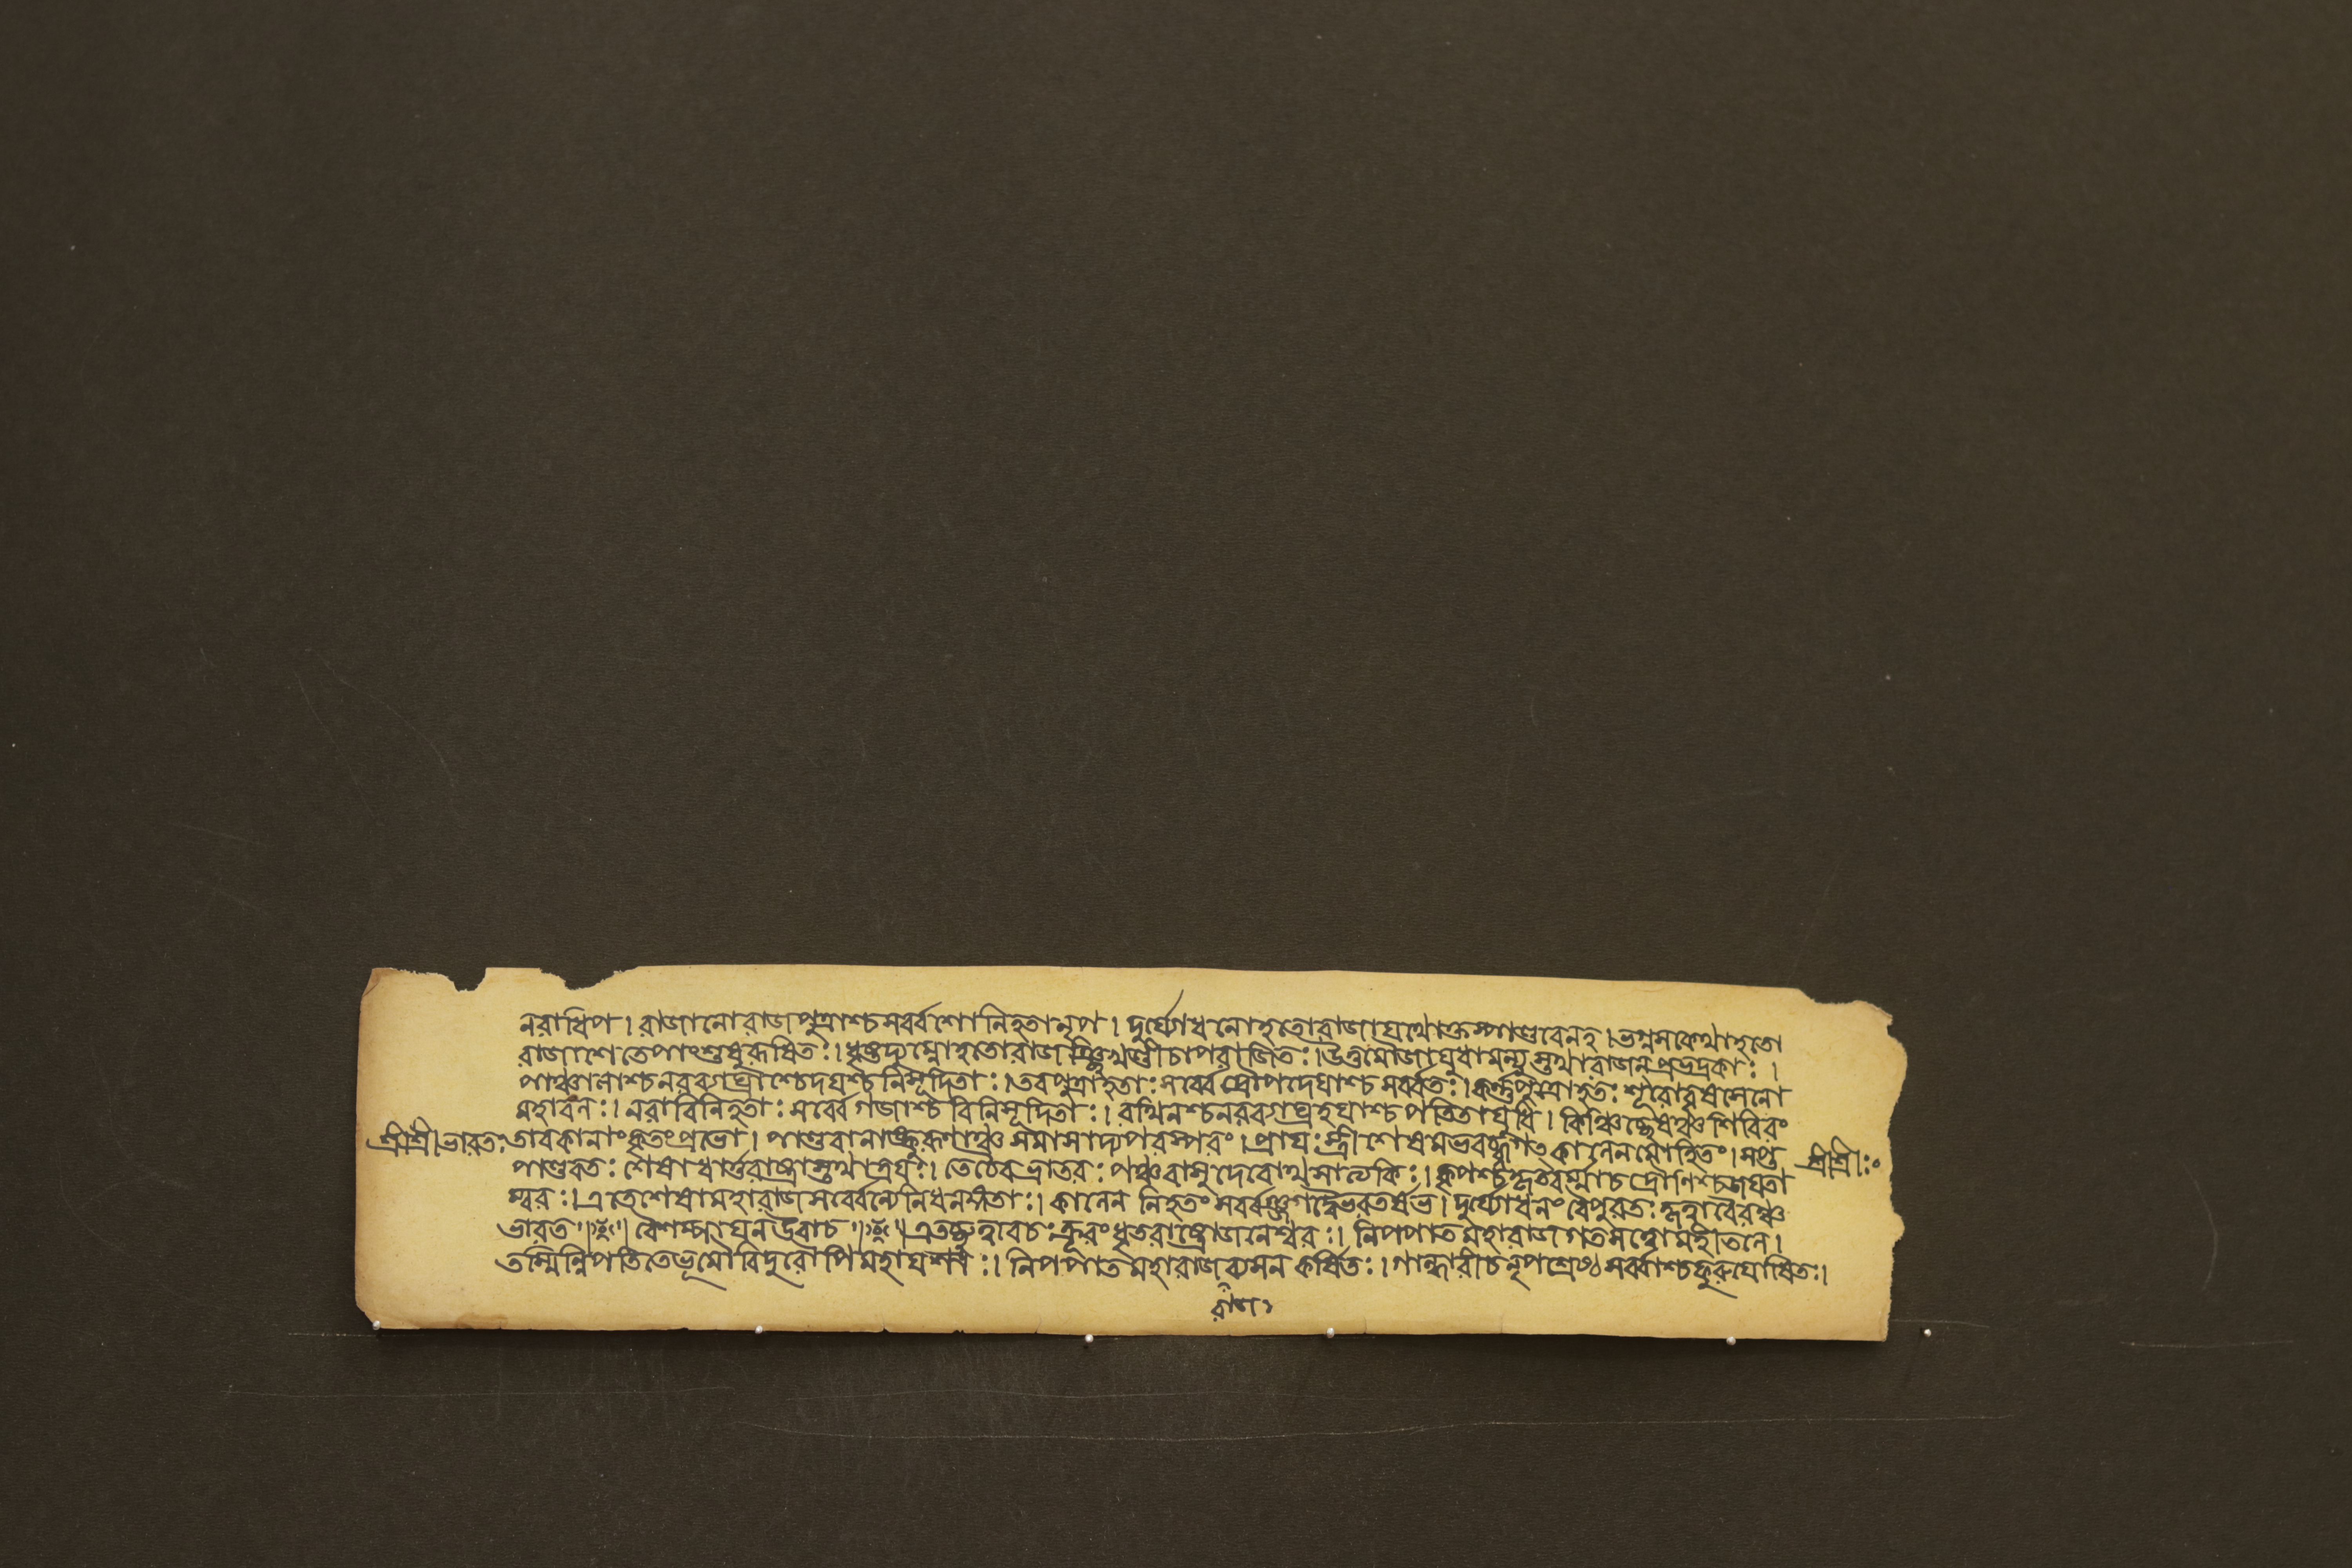 নরাধিপ । রাজানোরাজপুত্রাশ্চসর্ব্বশোনিহতানৃপ । দুর্য্যোধনোহতোরাজাযথোক্তম্পাণ্ডবেনহ । ভগ্নসক্থোহতো
রাজাশেতেপাংশুষুরূষিতঃ । ধৃষ্টদ্যুম্নোহতোরাজঞ্ছিখণ্ডীচাপরাজিতঃ । উত্তমৌজাযুধামন্যুস্তথারাজন্প্রভদ্রকাঃ ।
পাঞ্চালাশ্চনরব্যাঘ্রাশ্চেদয়শ্চনিসূদিতাঃ । তবপুত্রাহতাঃসর্ব্বেদ্রৌপদেয়াশ্চসর্ব্বতঃ । কর্ণপুত্রোহতঃশূরোবৃষসেনো
মহাবলঃ । নরাবিনিহতাঃসর্ব্বেগজাশ্চবিনিসূদিতাঃ । রথিনশ্চনরব্যাঘ্রহয়াশ্চপতিতাযুধি । কিঞ্চিচ্ছেষঞ্চশিবিরং
শ্রীশ্রী।ভারতঃ তাবকানাংকৃতংপ্রভো । পাণ্ডবানাঙ্কুরূণাঞ্চসমাসাদ্যপরস্পরং । প্রায়ঃস্ত্রীশেষমভবজ্জগৎকালেনমোহিতং । সপ্ত
পাণ্ডবতঃশেষাধার্ত্তরাষ্ট্রাস্তথাত্রয়ঃ । তেচৈবভ্রাতরঃপঞ্চবাসুদেবোথসাত্যকিঃ । কৃপশ্চকৃতবর্ম্মাচদ্রৌণিশ্চজয়তা শ্রীশ্রীঃ
ম্বরঃ । এতেশেষামহারাজসর্ব্বেন্যেনিধনঙ্গতাঃ । কালেন নিহতংসর্ব্বঞ্জগদ্বৈভরতর্ষভ । দুর্য্যোধনংবৈপুরতঃকৃত্বাবৈরঞ্চ
ভারত ॥ ॥ বৈশম্পায়ন উবাচ ॥ ॥ এতচ্ছ্রুত্বাবচঃক্রূরংধৃতরাষ্ট্রোজনেশ্বরঃ । নিপপাত মহারাজগতসত্ত্বোমহীতলে ।
তস্মিন্নিপতিতেভূমৌবিদুরোপিমহাযশাঃ । নিপপাতমহারাজব্যসন কর্ষিতঃ । গান্ধারীচনৃপশ্রেষ্ঠসর্ব্বাশ্চকুরুযোষিতঃ ।
রাজ